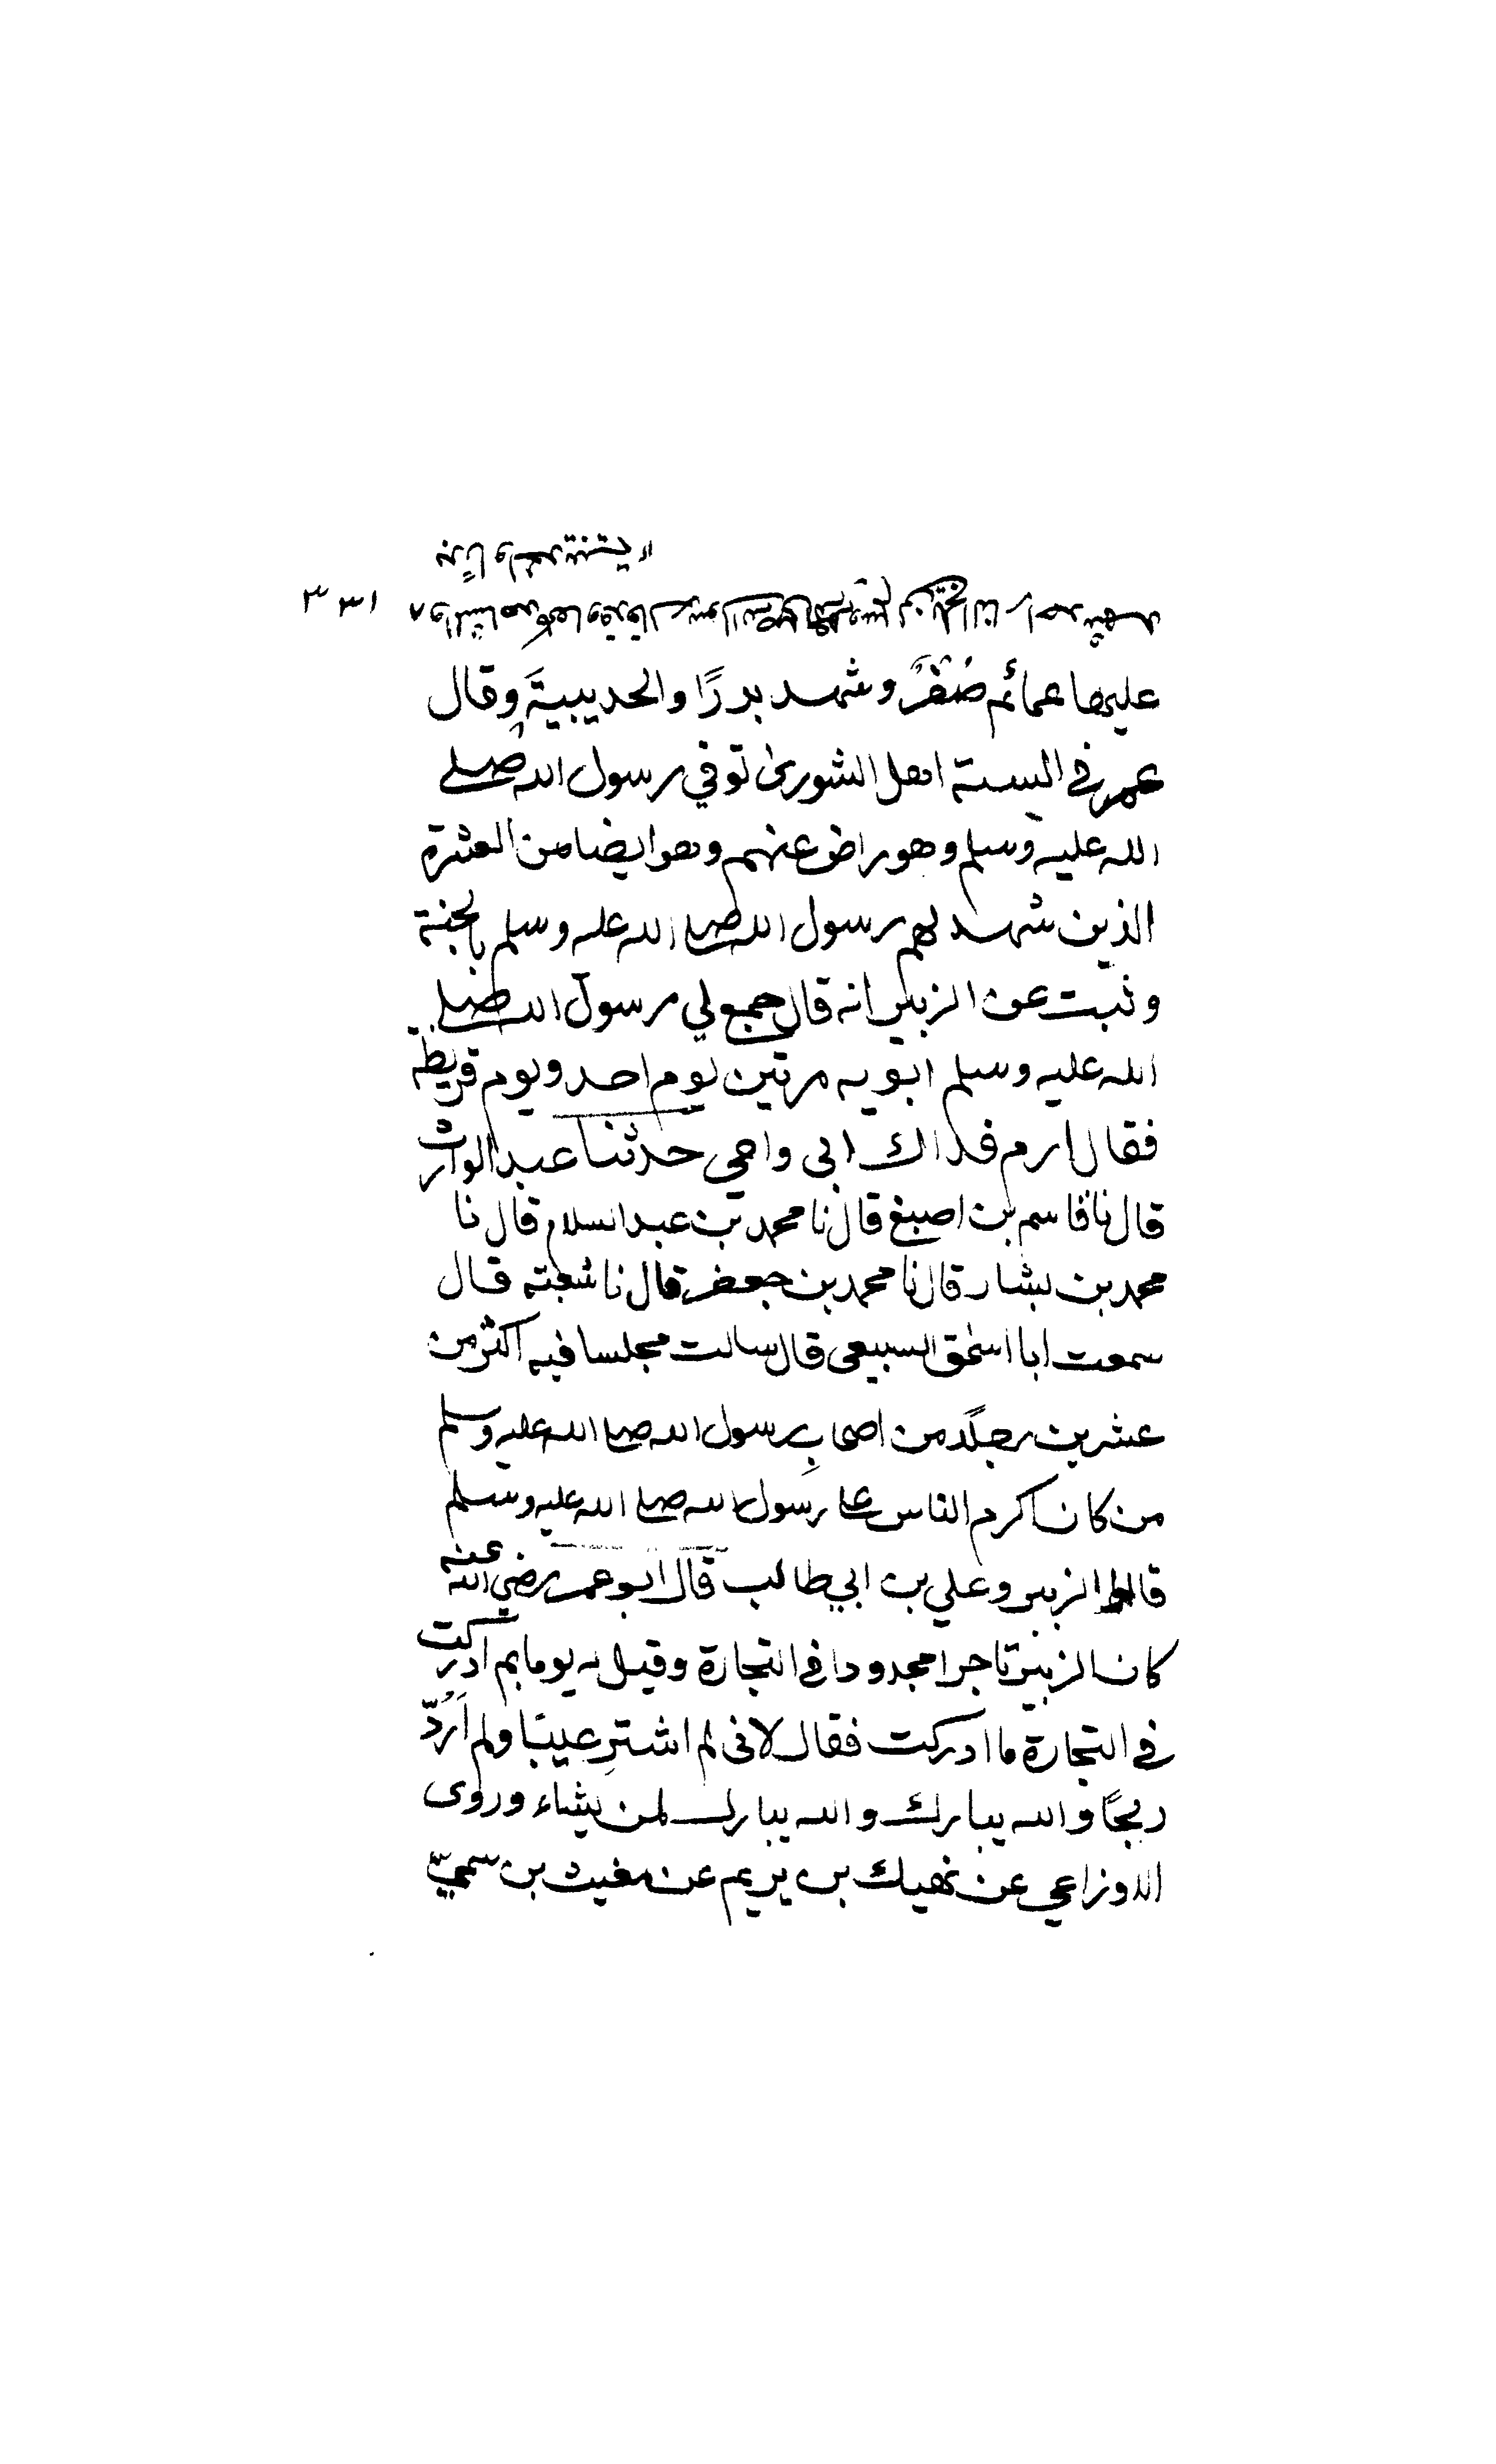 بدرًا والحديبية
والمشاهد كلها وقد قال رسول الله صلى الله عليه وسلم لن يلج النار احد شهد
عليها عمائم صُفْرٌ وشهد بدرًا والحديبيةَ وقال
عمر في الستة اهل الشورى توفي رسول الله صلى
الله عليه وسلم وهو راض عنهم وهو ايضا من العشرة
الذين شهد لهم رسول الله صلى الله عليه وسلم بالجنة
وثبت عن الزبير انه قال جمع لي رسول الله صلى
الله عليه وسلم ابويه مرتين يوم احد ويوم قريظة
فقال ارم فداك ابي وامي حدثنا عبد الوارث
قال نا قاسم بن اصبغ قال نا محمد بن عبد السلام قال نا
محمد بن بشار قال نا محمد بن جعفر قال نا شعبة قال
سمعت ابا اسحٰق السبيعي قال سالت مجلسا فيه اكثر من
عشرين رجلًا من اصحابِ رسول الله صلى الله عليه وسلم
من كان اكرم الناس على رسول الله صلى الله عليه وسلم
قالوا الزبير وعلي بن ابي طالب قال ابو عمر رضي الله عنه
كان الزبير تاجرا مجدودا في التجارة وقيل له يوما بم ادركت
في التجارة ما ادركت فقال لاني لم اشترِ عيبًا ولم اَرُدّ
ربحًا والله يبارك والله يبارك لمن يشاء وروى
الاوزاعي عن نهيك بن يريم عن مغيث بن سميّ